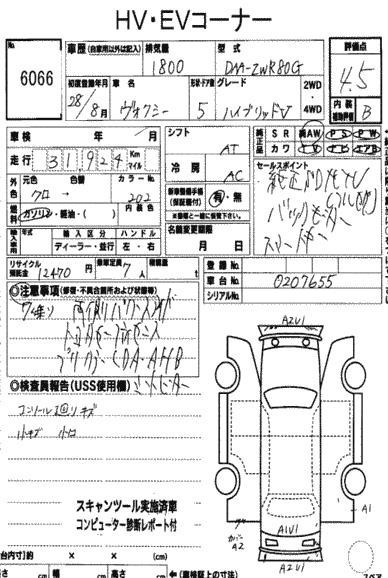 HV・EVコーナー
No. 6066
車歴(自家用以外は記入) 排気量 型式 評価点
1800 DAA-ZWR80G 4.5
初度登録年月 車名 形状・ドア数 グレード 2WD・4WD
28/8月 ヴォクシー 5 ハイブリッドV
内装補助評価 B
車検 年 月 シフト AT
純正品 SR 純AW PS PW
カワ TV ナビ エアB
走行 31924 Km マイル
冷房 AC
セールスポイント
純正SDナビTV
外色 元色 色替 カラーNo.
クロ → 202
燃料 ガソリン・軽油・( ) 内装色
新車整備手帳(保証書付) 有・無
※車検と一緒に保管下さい。
輸入車用 年式 輸入区分 ハンドル
ディーラー・並行 左・右
名義変更期限 月 日
リサイクル預託金 12470円 乗車定員 7人 積載量 t
登録No.
車台No. 0207655
シリアルNo.
◎注意事項(修復・不具合箇所および状態等)
7人乗り 両側パワースライド
◎検査員報告(USS使用欄)
コンソール回リキズ
小キズ 小凹
スキャンツール実施済車
コンピューター診断レポート付
A2U1
A1
A1U1
カバーA2
A2U1
(荷台内寸)約 × × (cm)
長さ cm 幅 cm 高さ cm ←(車検証上の寸法)